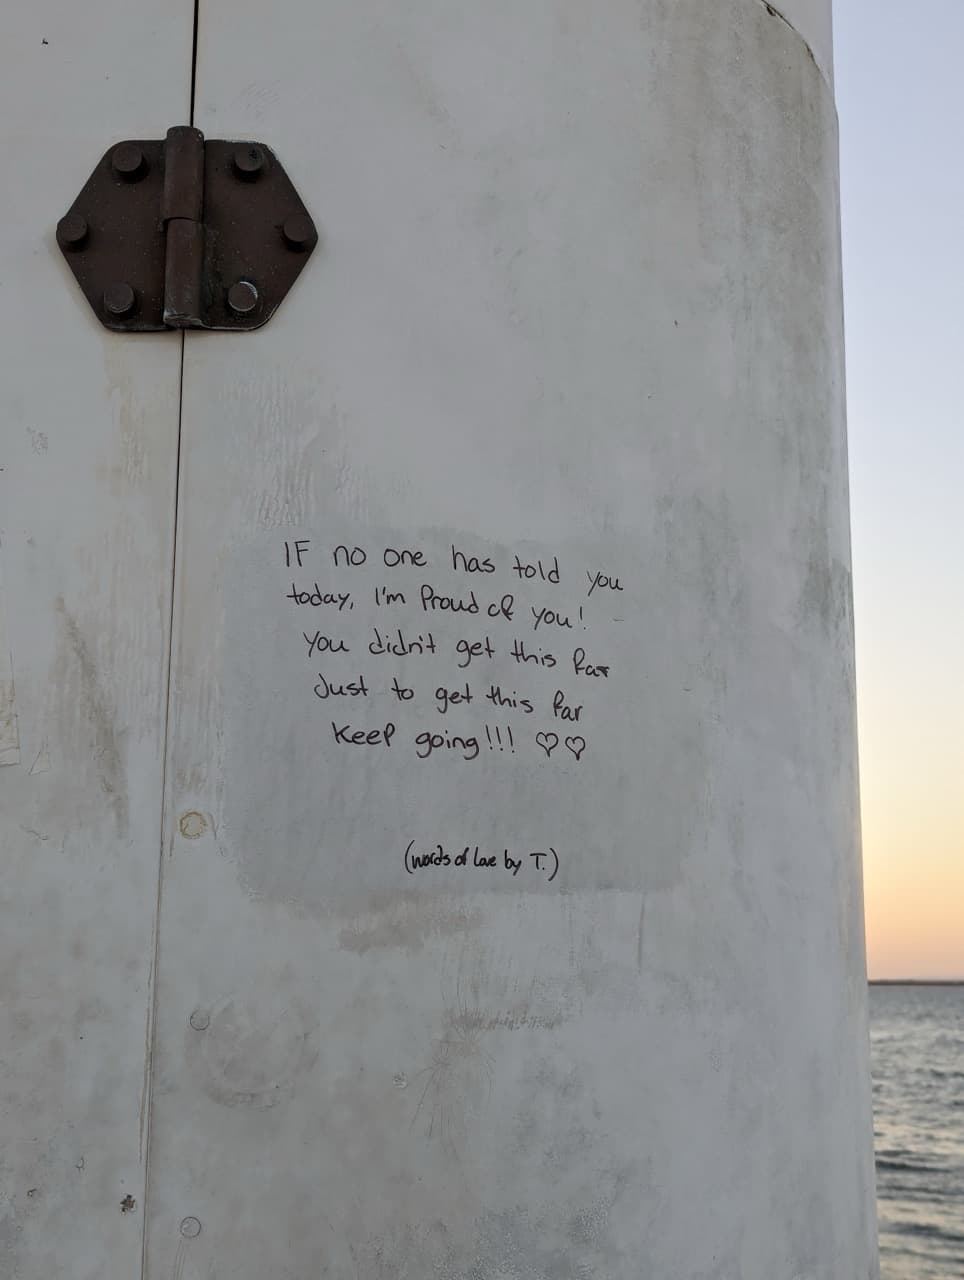 IF no one has told you
today, I'm Proud of you!
You didn't get this far
Just to get this far
Keep going!!! ♡♡
(words of love by T.)